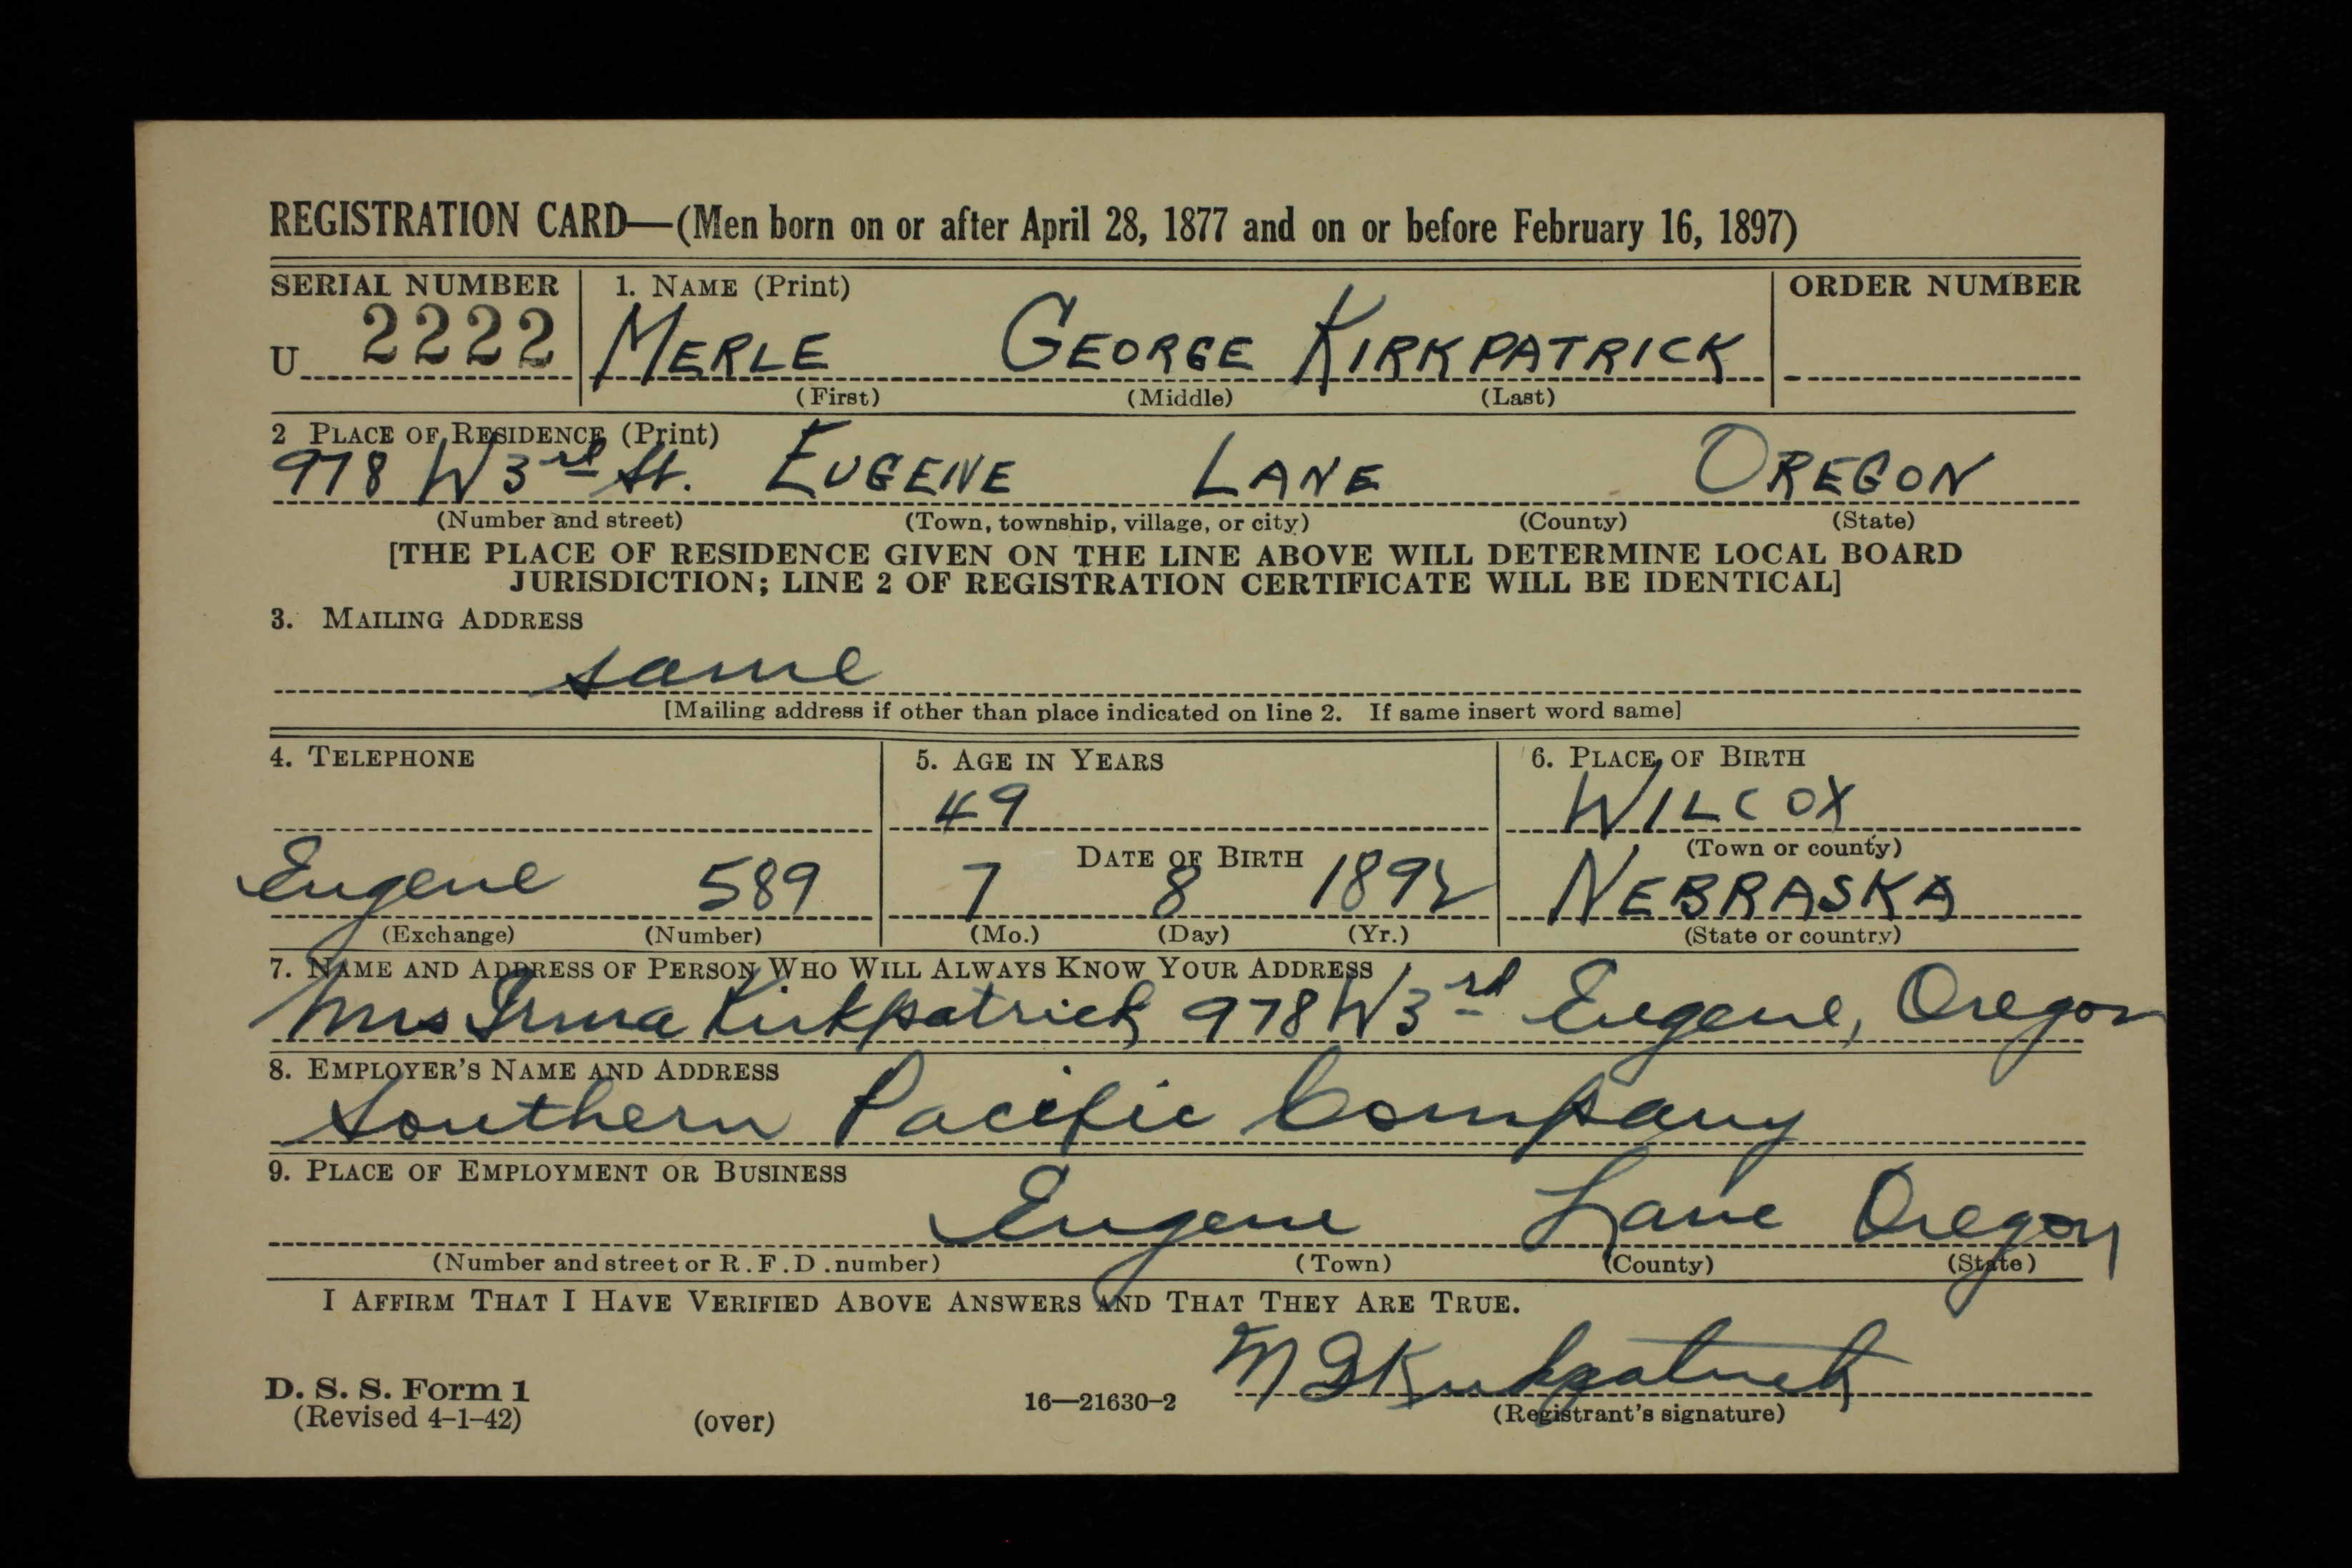 REGISTRATION CARD—(Men born on or after April 28, 1877 and on or before February 16, 1897)
SERIAL NUMBER 1. NAME (Print) ORDER NUMBER
U 2222 MERLE GEORGE KIRKPATRICK
(First) (Middle) (Last)
2 PLACE OF RESIDENCE (Print)
978 W 3rd St. EUGENE LANE OREGON
(Number and street) (Town, township, village, or city) (County) (State)
[THE PLACE OF RESIDENCE GIVEN ON THE LINE ABOVE WILL DETERMINE LOCAL BOARD
JURISDICTION; LINE 2 OF REGISTRATION CERTIFICATE WILL BE IDENTICAL]
3. MAILING ADDRESS
same
[Mailing address if other than place indicated on line 2. If same insert word same]
4. TELEPHONE 5. AGE IN YEARS 6. PLACE OF BIRTH
49 WILCOX
DATE OF BIRTH (Town or county)
Eugene 589 7 8 1892 NEBRASKA
(Exchange) (Number) (Mo.) (Day) (Yr.) (State or country)
7. NAME AND ADDRESS OF PERSON WHO WILL ALWAYS KNOW YOUR ADDRESS
Mrs Irma Kirkpatrick 978 W 3rd Eugene, Oregon
8. EMPLOYER'S NAME AND ADDRESS
Southern Pacific Company
9. PLACE OF EMPLOYMENT OR BUSINESS
Eugene Lane Oregon
(Number and street or R.F.D. number) (Town) (County) (State)
I AFFIRM THAT I HAVE VERIFIED ABOVE ANSWERS AND THAT THEY ARE TRUE.
M G Kirkpatrick
D. S. S. Form 1
(Revised 4-1-42) (over) 16—21630-2 (Registrant's signature)